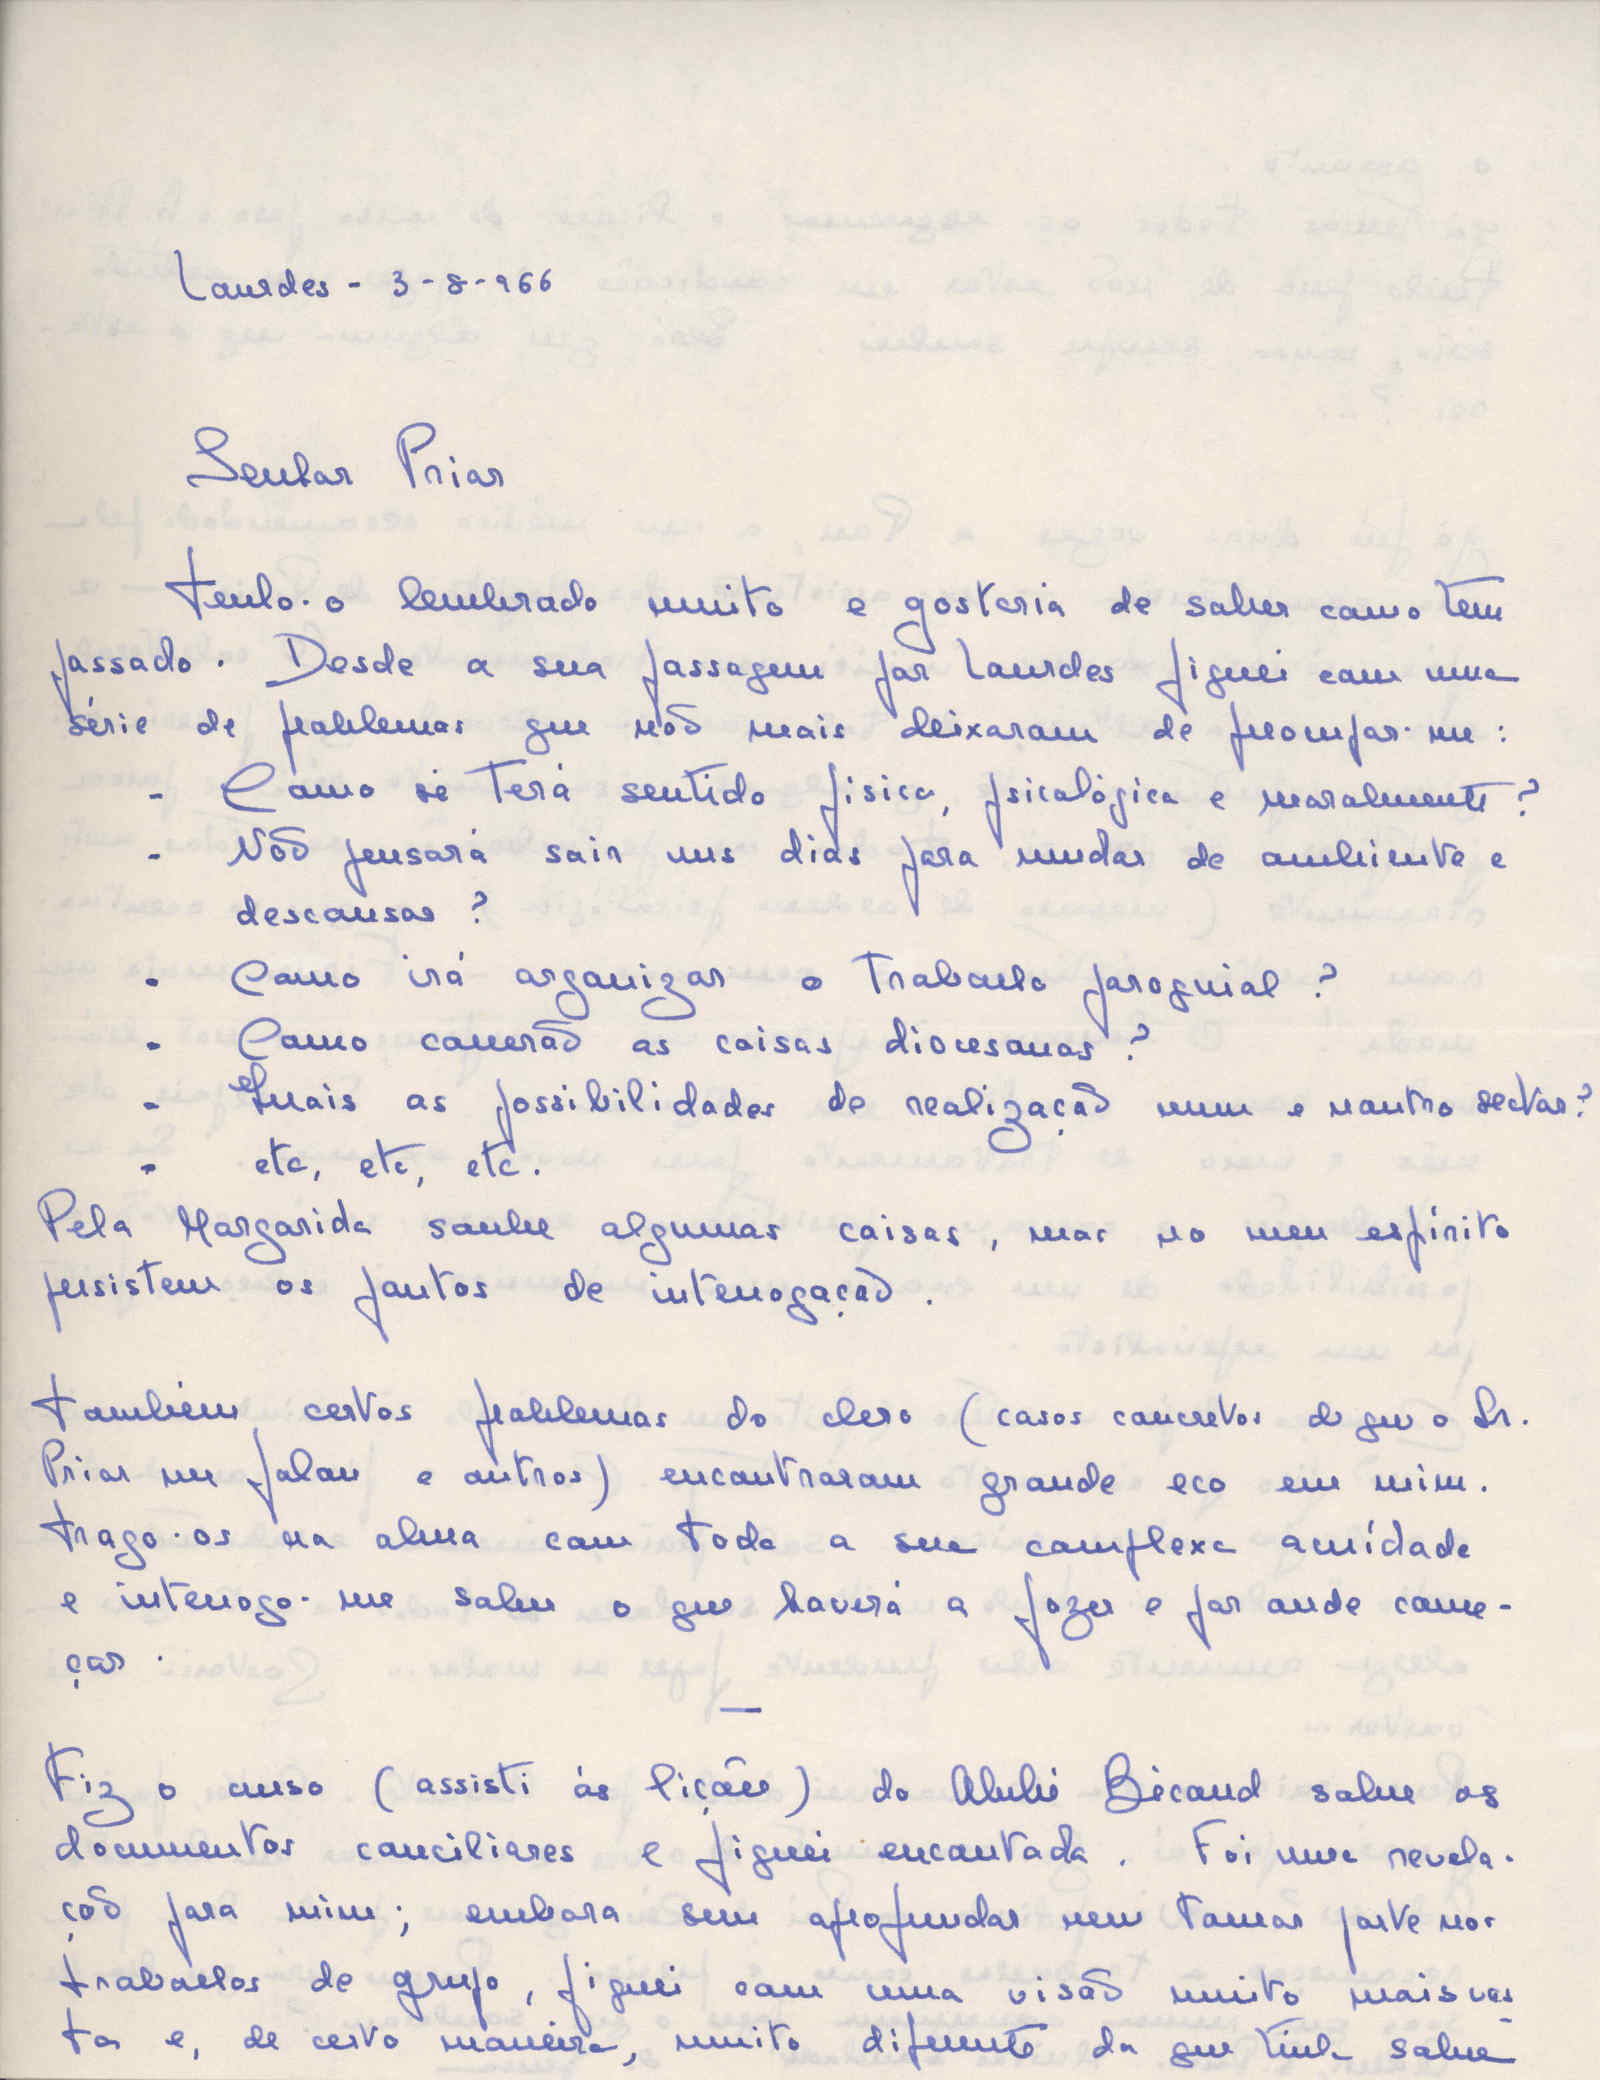 Lourdes - 3-8-966
Senhor Prior
Tenho-o lembrado muito e gostaria de saber como tem
passado. Desde a sua passagem por Lourdes fiquei com uma
série de problemas que não mais deixaram de preocupar-me:
- Como se terá sentido física, psicológica e moralmente?
- Não pensará sair uns dias para mudar de ambiente e
descansar?
- Como irá organizar o trabalho paroquial?
- Como correrão as coisas diocesanas?
- Quais as possibilidades de realização num e noutro sector?
- etc, etc, etc.
Pela Margarida soube algumas coisas, mas no meu espírito
persistem os pontos de interrogação.
Também certos problemas do clero (casos concretos de que o Sr.
Prior me falou e outros) encontraram grande eco em mim.
Trago-os na alma com toda a sua complexa acuidade
e interrogo-me sobre o que haverá a fazer e por onde come-
çar.
—
Fiz o curso (assisti às lições) do Abbé Bécaud sobre os
documentos conciliares e fiquei encantada. Foi uma revela-
ção para mim; embora sem aprofundar nem tomar parte nos
trabalhos de grupo, fiquei com uma visão muito mais vas-
ta e, de certo maneira, muito diferente da que tinha sobre